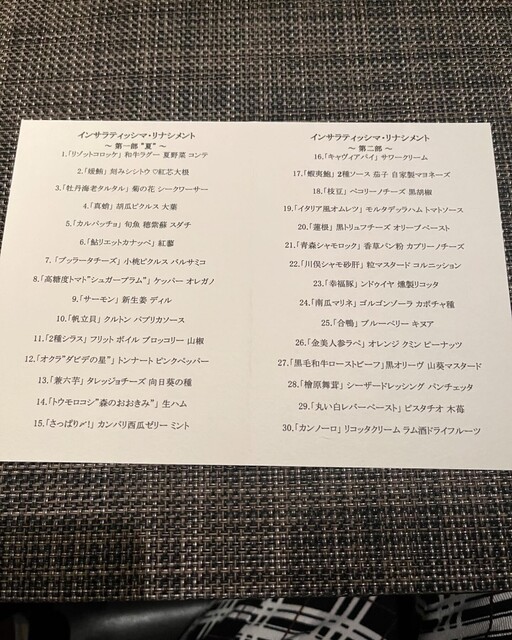 インサラティッシマ・リナシメント
～ 第一部 "夏" ～
1.「リゾットコロッケ」 和牛ラグー 夏野菜 コンテ
2.「縞鯵」 刻みシシトウ♡紅芯大根
3.「牡丹海老タルタル」 菊の花 シークワーサー
4.「真蛸」 胡瓜ピクルス 大葉
5.「カルパッチョ」 旬魚 穂紫蘇 スダチ
6.「鮎リエットカナッペ」 紅蓼
7.「ブッラータチーズ」 小桃ピクルス バルサミコ
8.「高糖度トマト"シュガープラム"」 ケッパー オレガノ
9.「サーモン」 新生姜 ディル
10.「帆立貝」 クルトン パプリカソース
11.「2種シラス」 フリット ボイル ブロッコリー 山椒
12.「オクラ"ダビデの星"」 トンナート ピンクペッパー
13.「兼六芋」 タレッジョチーズ 向日葵の種
14.「トウモロコシ"森のおおきみ"」 生ハム
15.「さっぱり〆!」 カンパリ西瓜ゼリー ミント
インサラティッシマ・リナシメント
～ 第二部 ～
16.「キャヴィアパイ」 サワークリーム
17.「蝦夷鮑」 2種ソース 茄子 自家製マヨネーズ
18.「枝豆」 ペコリーノチーズ 黒胡椒
19.「イタリア風オムレツ」 モルタデッラハム トマトソース
20.「蓮根」 黒トリュフチーズ オリーブペースト
21.「青森シャモロック」 香草パン粉 カプリーノチーズ
22.「川俣シャモ砂肝」 粒マスタード コルニッション
23.「幸福豚」 ンドゥイヤ 燻製リコッタ
24.「南瓜マリネ」 ゴルゴンゾーラ カボチャ種
25.「合鴨」 ブルーベリー キヌア
26.「金美人参ラペ」 オレンジ クミン ピーナッツ
27.「黒毛和牛ローストビーフ」 黒オリーヴ 山葵マスタード
28.「檜原舞茸」 シーザードレッシング パンチェッタ
29.「丸い白レバーペースト」 ピスタチオ 木苺
30.「カンノーロ」 リコッタクリーム ラム酒ドライフルーツ